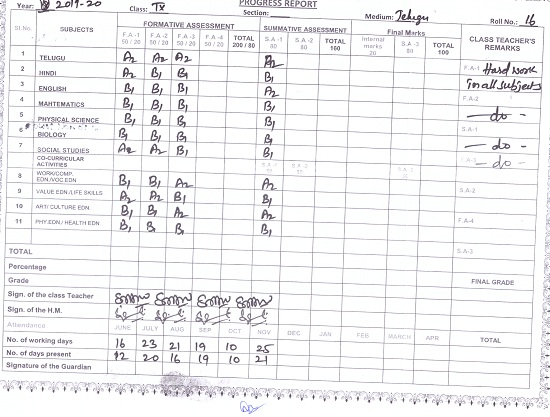 PROGRESS REPORT
Year: 2019-20 Class: IX Section: Medium: Telugu Roll No.: 16
Sl.No. SUBJECTS FORMATIVE ASSESSMENT SUMMATIVE ASSESSMENT Final Marks CLASS TEACHER'S REMARKS
F.A-1 50/20 F.A-2 50/20 F.A-3 50/20 F.A-4 50/20 TOTAL 200/80 S.A-1 80 S.A-2 80 TOTAL 100 Internal marks 20 S.A-3 80 TOTAL 100
1 TELUGU A2 A2 A2 A2 F.A-1 Hard work
2 HINDI A2 B1 B1 B1 in all subjects
3 ENGLISH B1 B1 B1 B1 F.A-2
4 MAHTEMATICS B1 B1 B1 B1 - do -
5 PHYSICAL SCIENCE B1 B1 B1 B1 S.A-1
6 BIOLOGY B1 B1 B1 B1 - do -
7 SOCIAL STUDIES A2 A2 B1 B1 F.A-3 - do -
CO-CURRICULAR ACTIVITIES
8 WORK/COMP. EDN./VOC.EDN B1 B1 A2 A2 S.A-2
9 VALUE EDN /LIFE SKILLS A2 A2 B1 B1
10 ART/ CULTURE EDN. B1 B1 A2 A2 F.A-4
11 PHY.EDN / HEALTH EDN. B1 B1 B1 B1
TOTAL S.A-3
Percentage
Grade FINAL GRADE
Sign. of the class Teacher
Sign. of the H.M.
Attendance JUNE JULY AUG SEP OCT NOV DEC JAN FEB MARCH APR TOTAL
No. of working days 16 23 21 19 10 25
No. of days present 12 20 16 19 10 21
Signature of the Guardian